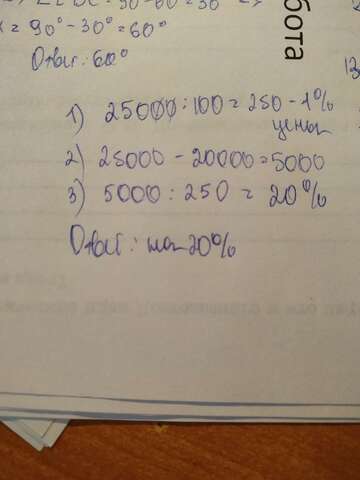 x = 90° - 30° = 60°
Ответ: 60°
бота
1) 25000 : 100 = 250 - 1%
цены
2) 25000 - 20000 = 5000
3) 5000 : 250 = 20%
Ответ: на 20%